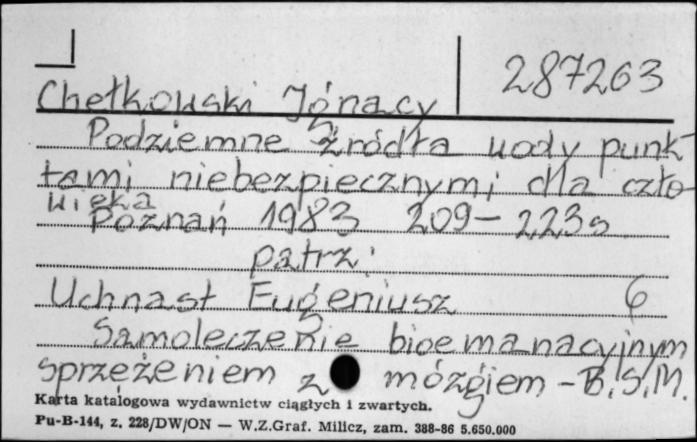 287263
Chełkowski Ignacy
Podziemne źródła wody punk-
tami niebezpiecznymi dla czło-
wieka
Poznań 1983 209-223s
patrz:
Uchnast Eugeniusz 6
Samoleczenie bioemanacyjnym
sprzężeniem z mózgiem - B.S.M.
Karta katalogowa wydawnictw ciągłych i zwartych.
Pu-B-144, z. 228/DW/ON — W.Z.Graf. Milicz, zam. 388-86 5.650.000